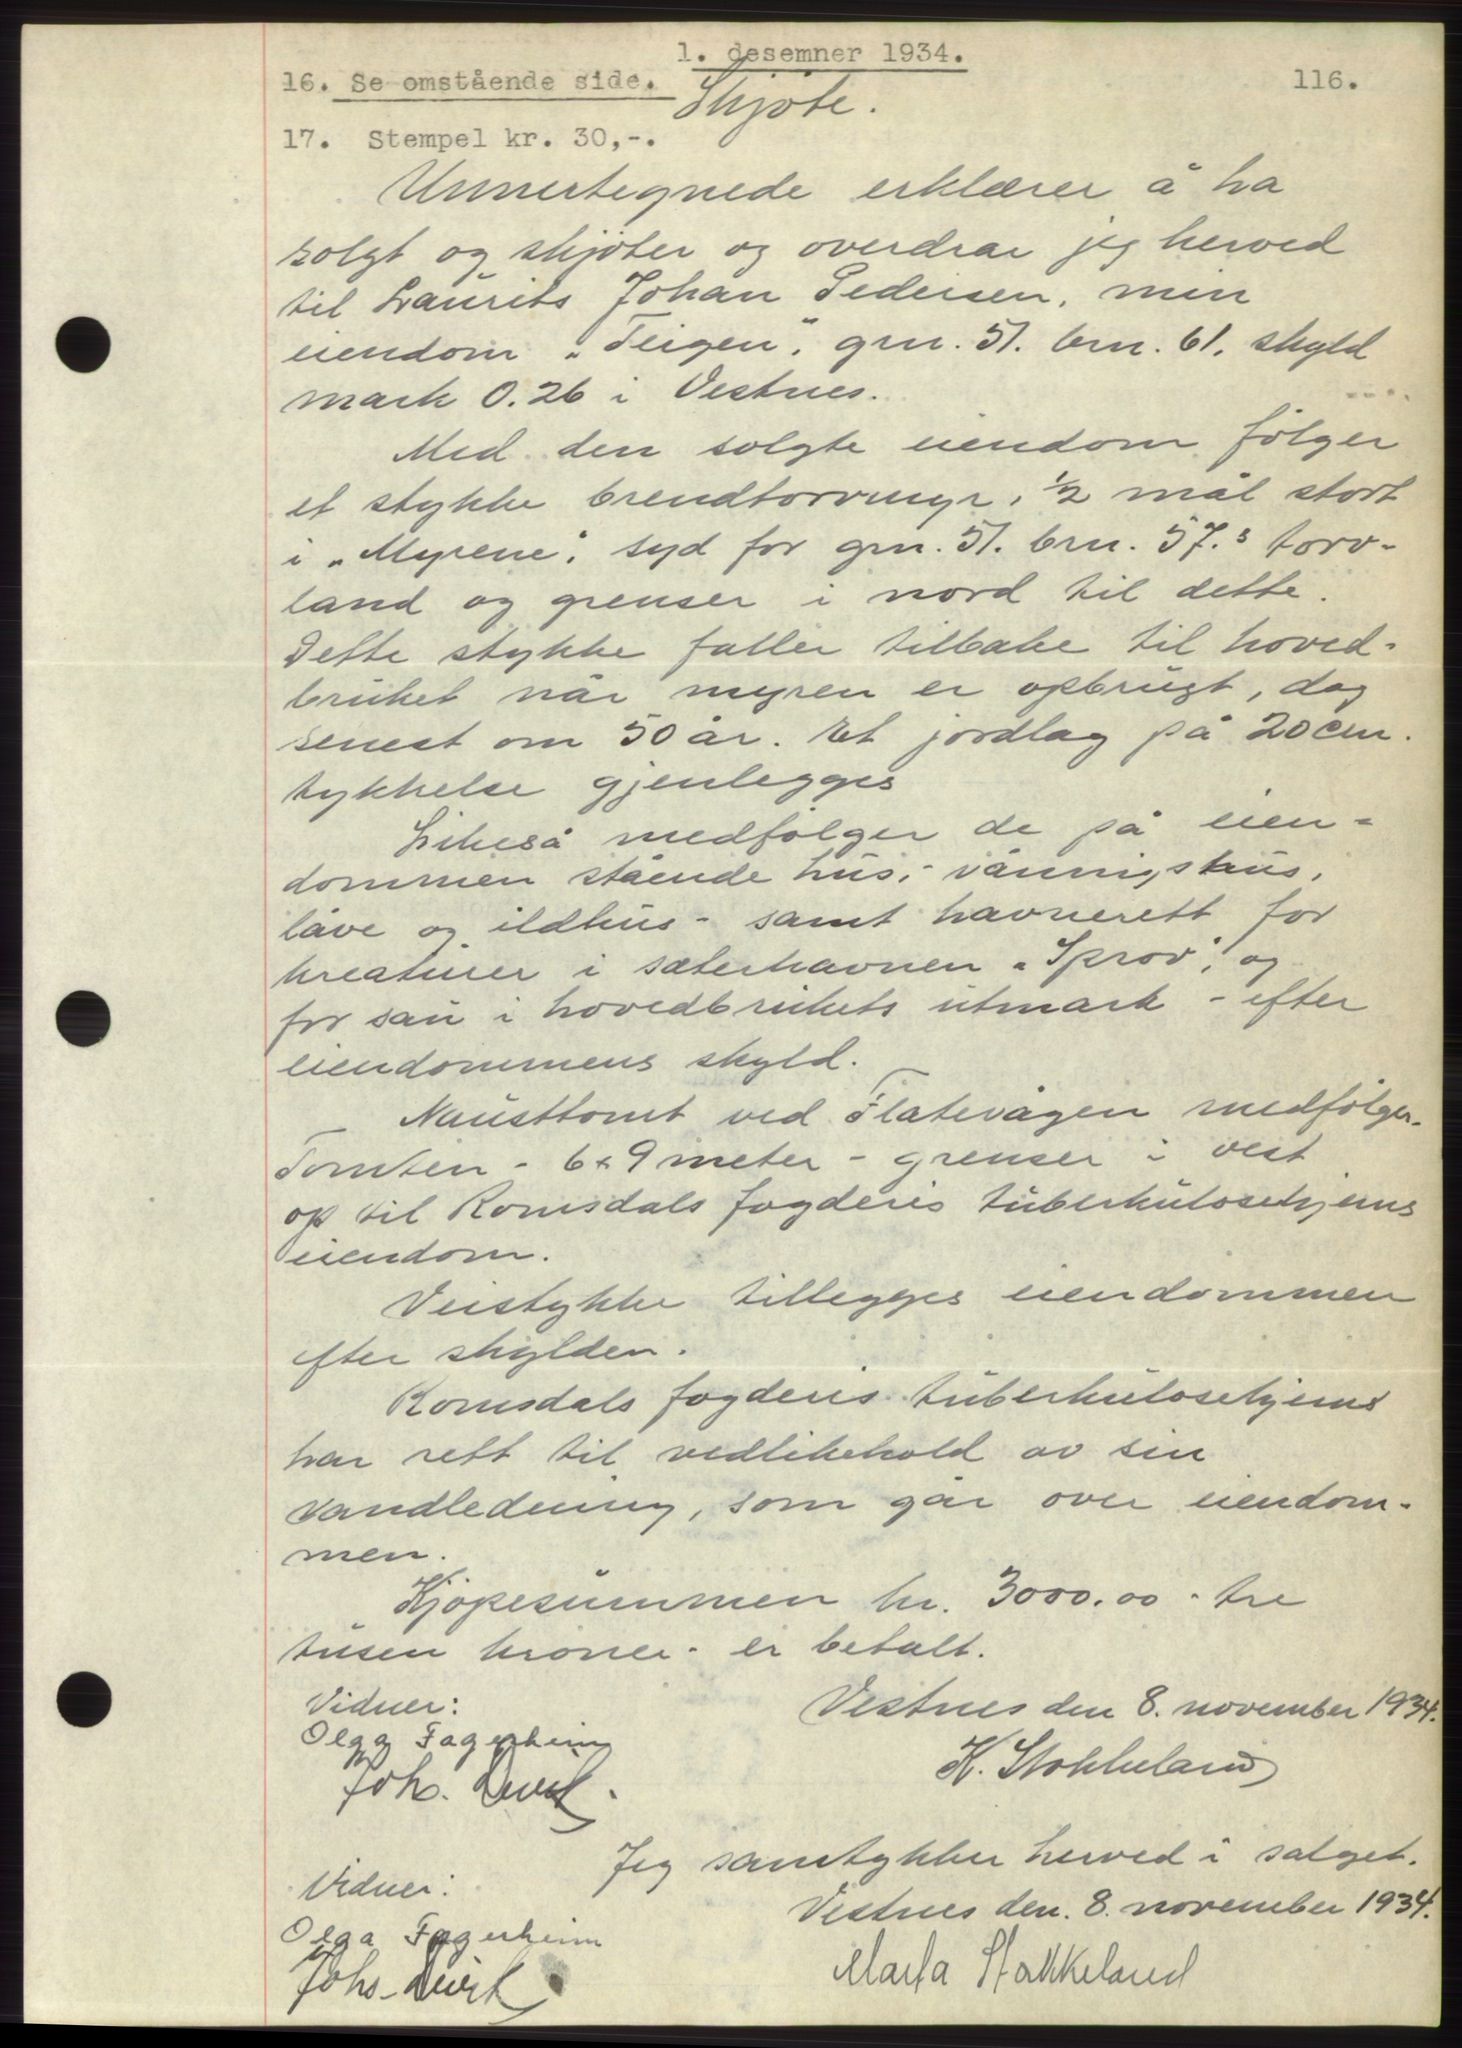 1. desemner 1934.
16. Se omstående side.
116.
Skjöte.
17. Stempel kr. 30,-.
Unnertegnede erklærer å ha
solgt og skjöter og overdrar jeg herved
til Laurits Johan Pedersen, min
eiendom „Teigen", grn. 51. brn. 61, skyld
mark 0.26 i Vestnes.
Med den solgte eiendom fölger
et stykke brendtorvmyr, 1/2 mål stort
i „Myrene", syd for grn. 51. brn. 57.s torv-
land og grenser i nord til dette.
Dette stykke faller tilbake til hoved-
bruket når myren er opbrugt, dog
senest om 50 år. Et jordlag på 20 cm.
tykkelse gjenlegges
Likeså medfölger de på eien-
dommen stående hus, - vånnigshus,
låve og ildhus - samt havnerett for
kreaturer i sæterhavnen „Sprov", og
for sau i hovedbrukets utmark - efter
eiendommens skyld.
Nausttomt ved Flatevågen medfölger.
Tomten - 6 x 9 meter - grenser i vest
op til Romsdals fogderis tuberkulosehjems
eiendom.
Veistykke tillegges eiendommen
efter skylden.
Romsdals fogderis tuberkulosehjems
har rett til vedlikehold av sin
vandledning, som går over eiendom-
men.
Kjöpesummen kr. 3000.00 - tre
tusen kroner - er betalt.
Vidner:
Vestnes den 8. november 1934.
Olga Fagerheim
K. Stokkeland
Johs.
Jeg samtykker herved i salget.
Vidner:
Vestnes den. 8. november 1934.
Olga Fagerheim
Marta Stokkeland
Johs.